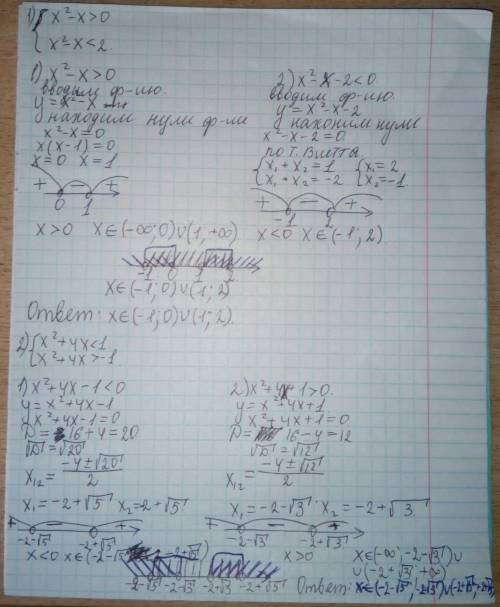 1) { x²-x>0
{ x²-x<2.
1) x²-x>0
вводим ф-ию.
y=x²-x
находим нули ф-ии
x²-x=0
x(x-1)=0
x=0 x=1
+ - +
0 1
x>0 x∈(-∞;0)∪(1;+∞)
2) x²-x-2<0
вводим ф-ию.
y=x²-x-2
находим нули
x²-x-2=0
по т. Виетта
{ x₁+x₂=1 { x₁=2
{ x₁·x₂=-2 { x₂=-1.
+ - +
-1 2
x<0 x∈(-1;2)
-1 0 1 2
x∈(-1;0)∪(1;2)
Ответ: x∈(-1;0)∪(1;2).
2) { x²+4x<1
{ x²+4x>-1
1) x²+4x-1<0
y=x²+4x-1
x²+4x-1=0
D=16+4=20
√D=√20
x₁₂=(-4±√20)/2
x₁=-2+√5 x₂=-2+√5
+ - +
-2-√5 -2+√5
x<0 x∈(-2-√5; -2+√5)
2) x²+4x+1>0.
y=x²+4x+1
x²+4x+1=0
D=16-4=12
√D=√12
x₁₂=(-4±√12)/2
x₁=-2-√3 x₂=-2+√3
+ - +
-2-√3 -2+√3
x>0 x∈(-∞;-2-√3)∪
∪(-2+√3;+∞)
-2-√5 -2-√3 -2+√3 -2+√5
Ответ: x∈(-2-√5;-2-√3)∪(-2+√3;-2+√5)